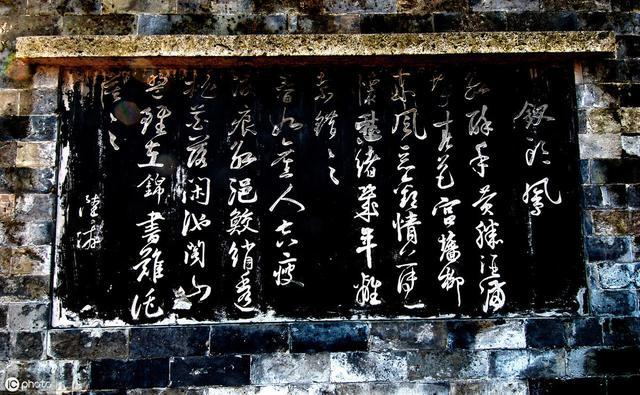 釵头鳳
紅酥手黄縢酒滿
城春色宫墻柳
東風惡歡情薄一
懷愁緒幾年離
索錯々々
春如舊人空瘦
淚痕紅浥鮫綃透
桃花落闲池閣山
盟雖在錦書難托
莫々々
陸游
ic photo